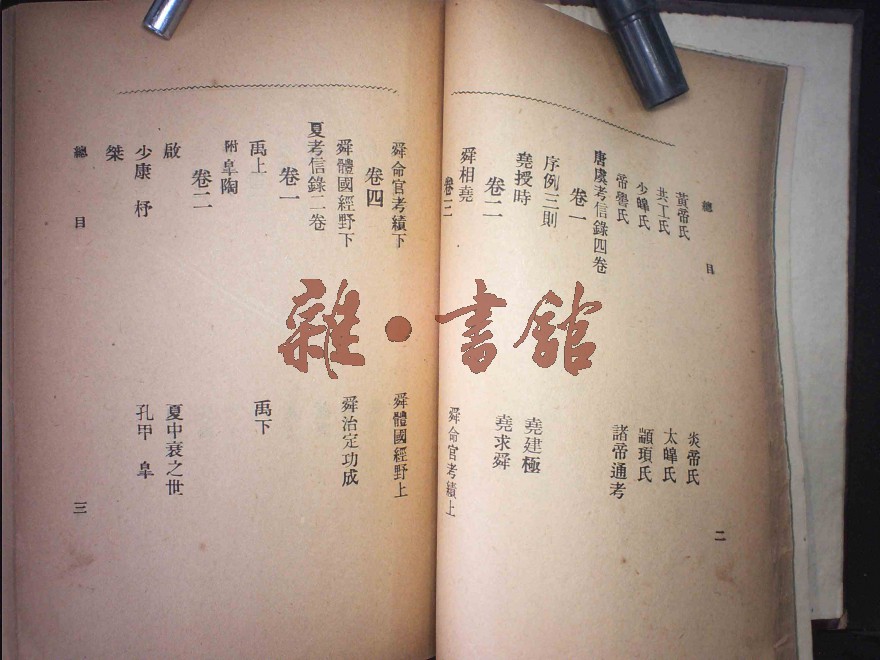 總目
二
黃帝氏 炎帝氏
共工氏 太皞氏
少皞氏 顓頊氏
帝嚳氏 諸帝通考
唐虞考信錄四卷
卷一
序例三則
堯授時 堯建極
卷二 堯求舜
舜相堯
卷三 舜命官考績上
舜命官考績下 舜體國經野上
卷四
舜體國經野下 舜治定功成
夏考信錄二卷
卷一
禹上 禹下
附皐陶
卷二
啟 夏中衰之世
少康 杼 孔甲 皐
桀
總目
三
雜·書館